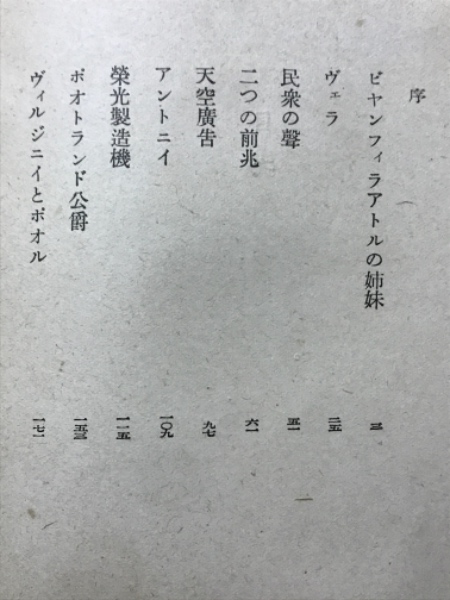 序
ビヤンフィラアトルの姉妹 三
ヴェラ 二五
民衆の聲 五一
二つの前兆 六一
天空廣告 九七
アントニイ 一〇九
榮光製造機 一一五
ポオトランド公爵 一五三
ヴィルジニイとポオル 一七一